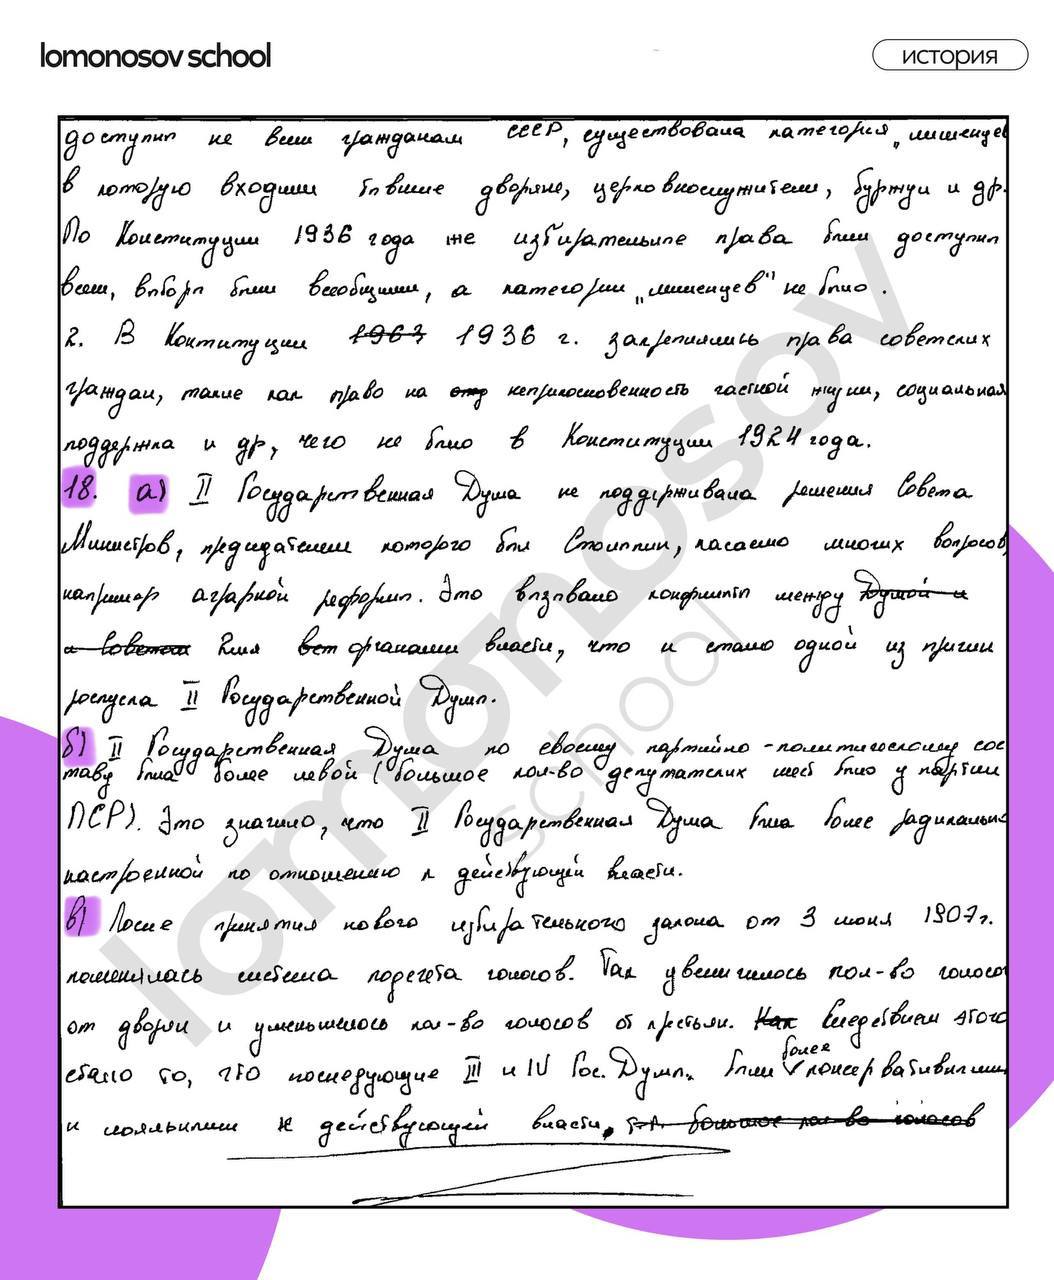 lomonosov school
история
доступны не всем гражданам СССР, существовала категория „лишенцев
в которую входили бывшие дворяне, церковнослужители, буржуи и др.
По Конституции 1936 года же избирательные права были доступны
всем, выборы были всеобщими, а категории „лишенцев" не было.
2. В Конституции 1963 1936 г. закреплялись права советских
граждан, такие как право на неприкосновенность частной жизни, социальная
поддержка и др, чего не было в Конституции 1924 года.
18. а) II Государственная Дума не поддерживала решения Совета
Министров, председателем которого был Столыпин, касаемо многих вопросов,
например аграрной реформы. Это вызывало конфликты между Думой и
и Советом 2мя вет органами власти, что и стало одной из причин
роспуска II Государственной Думы.
б) II Государственная Дума по своему партийно-политическому сос
таву была более левой (большое кол-во депутатских мест было у партии
ПСР). Это значило, что II Государственная Дума была более радикально
настроенной по отношению к действующей власти.
в) После принятия нового избирательного закона от 3 июня 1907г.
поменялась система подсчета голосов. Так увеличилось кол-во голосов
от дворян и уменьшилось кол-во голосов от крестьян. Как Следствием этого
стало то, что последующие III и IV Гос. Думы. были более консервативными
и лояльными к действующей власти, т.к. большое кол-во голосов
lomonosov
school